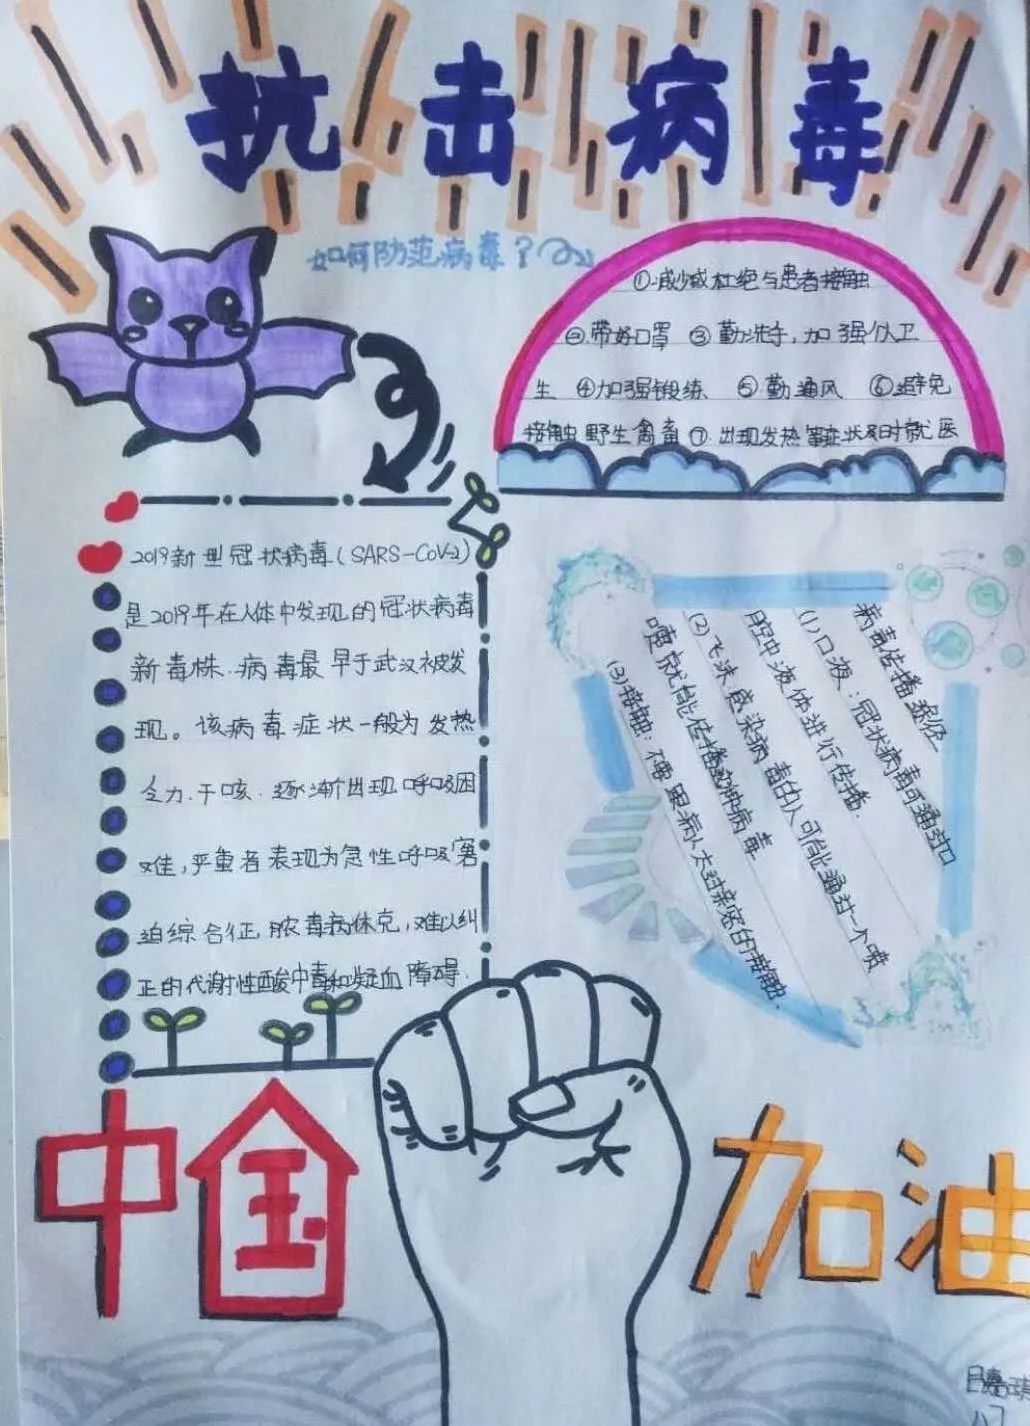 抗击病毒
如何防范病毒?
①.减少或杜绝与患者接触
②.带好口罩 ③勤洗手,加强个人卫
生 ④加强锻练 ⑤勤通风 ⑥避免
接触野生禽毒⑦.出现发热等症状及时就医
2019新型冠状病毒(SARS-CoV-2)
是2019年在人体中发现的冠状病毒
新毒株.病毒最早于武汉被发
现。该病毒症状一般为发热
乏力.干咳.逐渐出现呼吸困
难,严重者表现为急性呼吸窘
迫综合征,脓毒病休克,难以纠
正的代谢性酸中毒和凝血障碍.
病毒传播途径
(1)口液:冠状病毒可通过口
腔中液体进行传播.
(2)飞沫感染病毒的人可能通过一个喷
嚏就能传播这种病毒
(3)接触:不要跟病人太过亲密的接触.
中国
加油